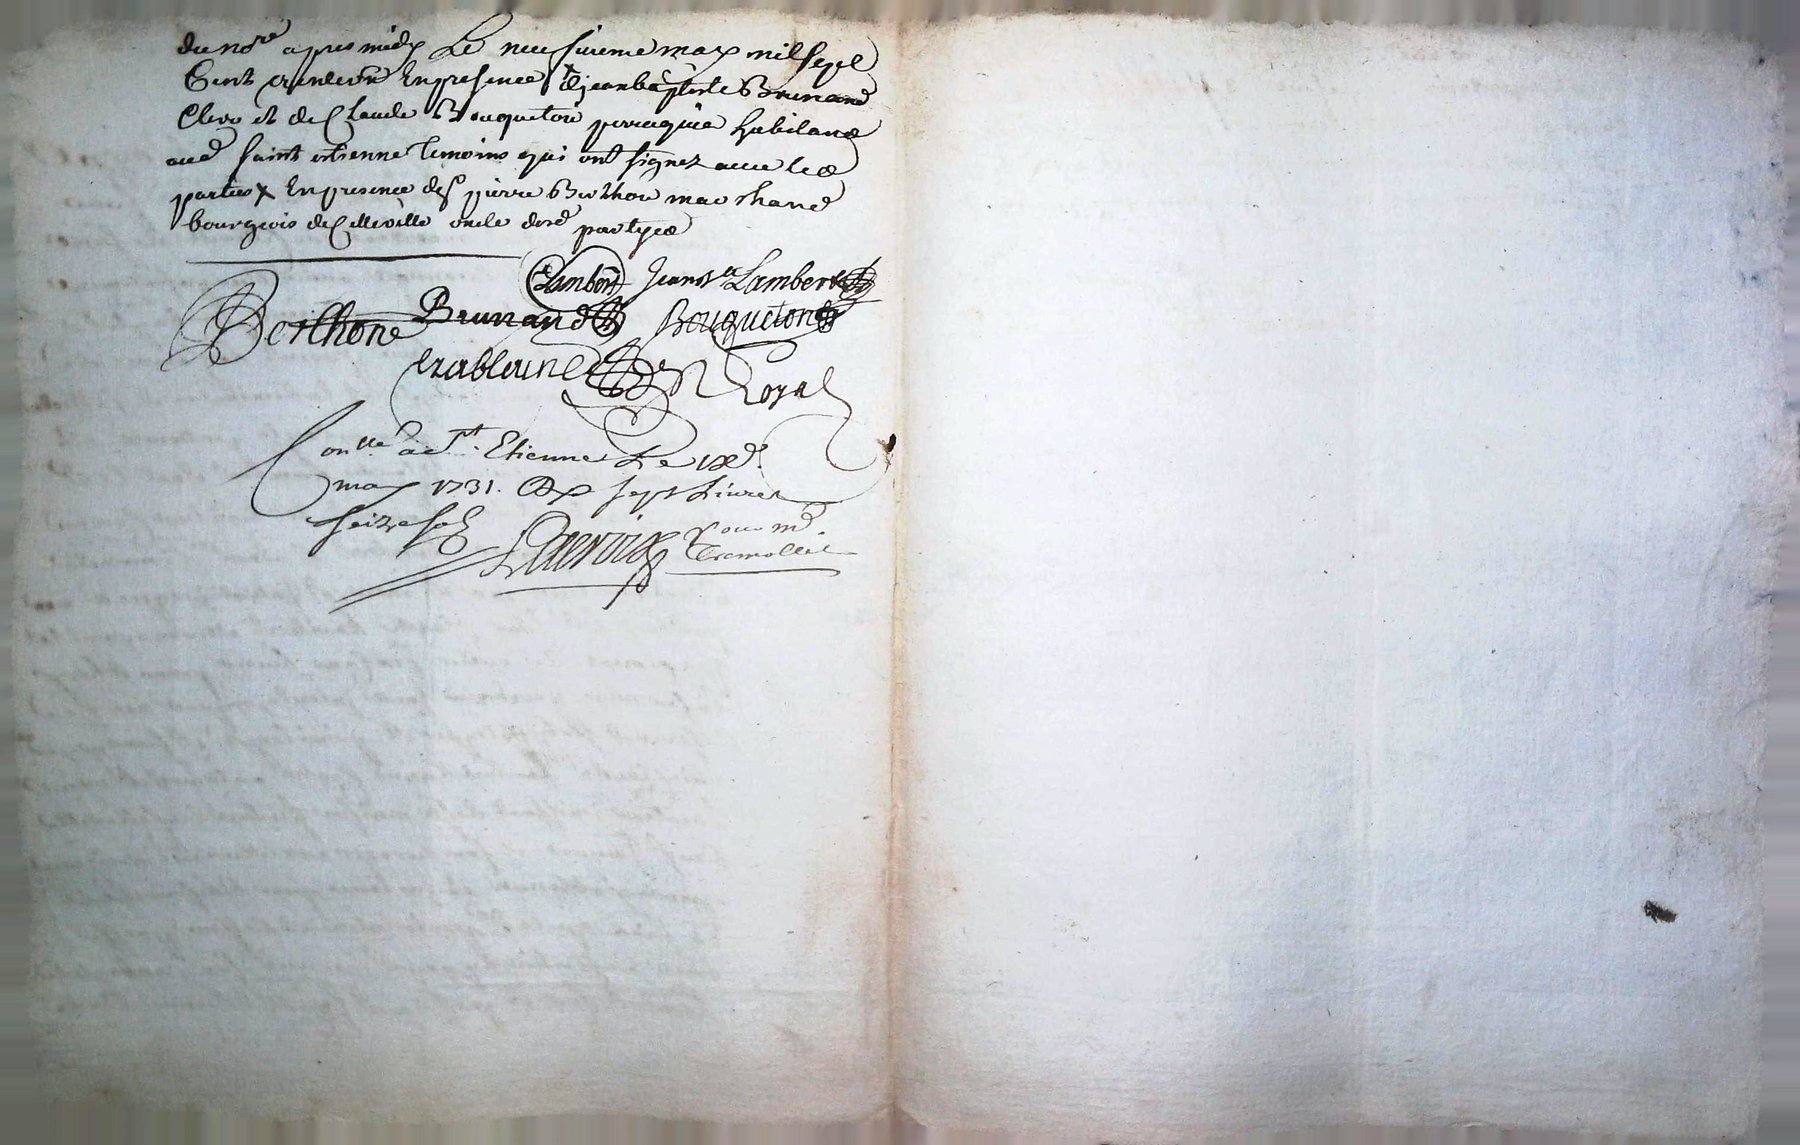 du no.re apres midy Le neufvieme may mil sept
Cent trente un En presence de jean baptiste Brunand
Clerc et de Claude Bouqueton perruquier habitans
aud saint etienne temoins qui ont signez avec les
parties x En presence de s.r pierre Berthon marchand
bourgeois de cette ville oncle desd partyes
Lambert Jean B.te Lambert
Berthon Brunand Bouqueton
Royal
Con.lle a S.t Etienne Le IXe.
may 1731. R sept Livres
seize sols
Delacroix pour m.r
Tremollet